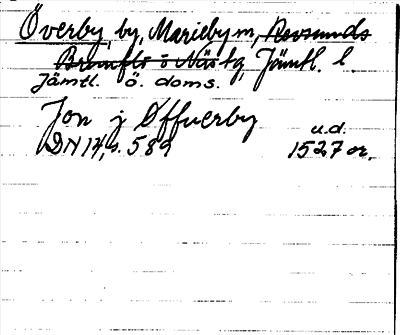 Överby by, Marieby sn, Revsunds
Brunflo o Näs tg Jämtl. l.
Jämtl. ö. doms.
Jon j Øffuerby
u.d.
DN 14, s. 589
1527 or.